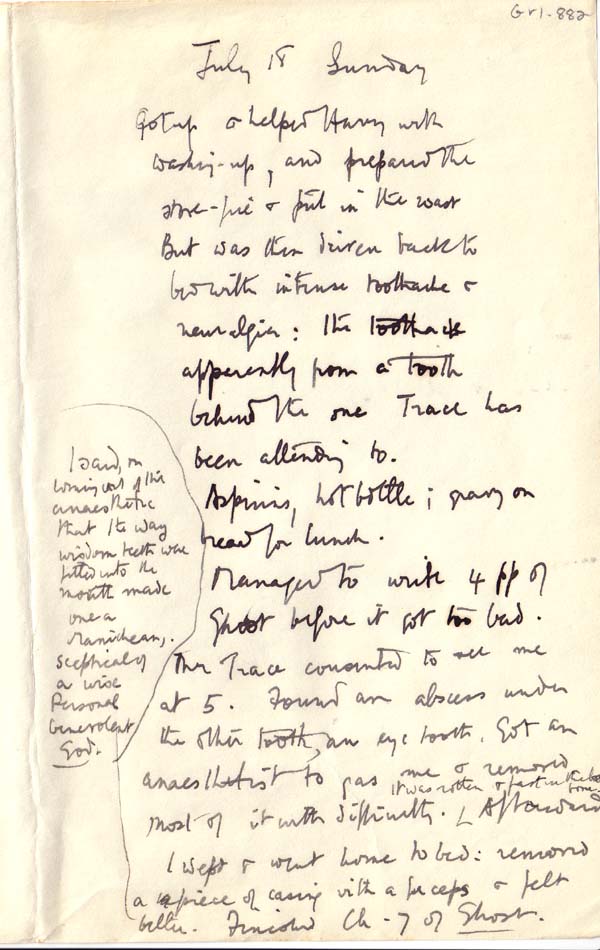 Gr1-882
July 18 Sunday
Got up & helped Harry with
washing-up, and prepared the
stove-fire & put in the roast
But was then driven back to
bed with intense toothache &
neuralgia: the toothache
apparently from a tooth
behind the one Trace has
been attending to.
Aspirins, hot bottle; gravy on
bread for lunch.
Managed to write 4 pp of
Ghost before it got too bad.
Mr Trace consented to see me
at 5. Found an abscess under
the other tooth, an eye tooth. Got an
anaesthetist to gas me & removed
it was rotten & fast in the bone.
most of it with difficulty. Afterward
I wept & went home to bed: removed
a piece of casing with a forceps & felt
better. Finished Ch-7 of Ghost.
I said, on
coming out of the
anaesthetic
that the way
wisdom teeth were
fitted into the
mouth made
one a
Manichean,
sceptical of
a wise
Personal
benevolent
God.